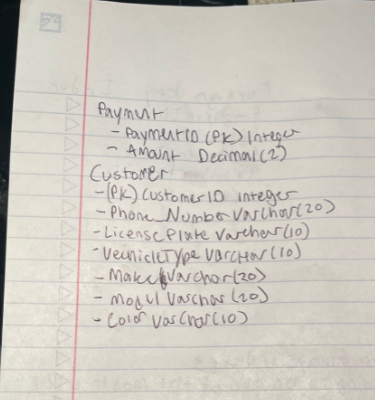 Payment
- PaymentID (PK) Integer
- Amount Decimal(2)
Customer
- (PK) CustomerID integer
- Phone_Number Varchar(20)
- LicensePlate Varchar(10)
- VechicleType VARCHAR(10)
- Make Varchar(20)
- Model Varchar (20)
- Color Varchar(10)